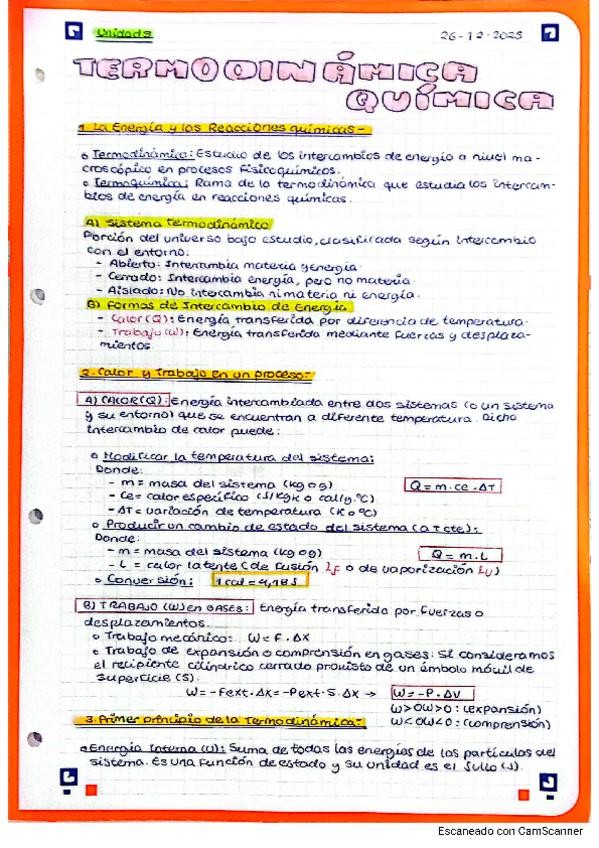 Unidad 3
26-12-2025
TERMODINÁMICA
QUÍMICA
1. La Energía y las Reacciones químicas-
o Termodinámica: Estudio de los intercambios de energía a nivel ma-
croscópico en procesos físicoquímicos.
o Termoquímica: Rama de la termodinámica que estudia los intercam-
bios de energía en reacciones químicas.
A) Sistema Termodinámico
Porción del universo bajo estudio, clasificada según intercambio
con el entorno:
- Abierto: Intercambia materia y energía.
- Cerrado: Intercambia energía, pero no materia.
- Aislado: No intercambia ni materia ni energía.
B) Formas de Intercambio de Energía
- Calor (Q): Energía transferida por diferencia de temperatura.
- Trabajo (W): Energía transferida mediante fuerzas y desplaza-
mientos
2. Calor y Trabajo en un proceso:-
A) CALOR (Q): Energía intercambiada entre dos sistemas (o un sistema
y su entorno) que se encuentran a diferente temperatura. Dicho
intercambio de calor puede:
o Modificar la temperatura del sistema:
Donde:
- m = masa del sistema (kg o g)
Q = m · ce · ΔT
- Ce = calor específico (J/kgK o cal/g·ºC)
- ΔT = variación de temperatura (K o ºC)
o Producir un cambio de estado del sistema (a T cte):
Donde:
- m = masa del sistema (kg o g)
Q = m · L
- L = calor latente (de fusión Lf o de vaporización Lv)
o Conversión: 1 cal = 4,18 J
B) TRABAJO (W) EN GASES: Energía transferida por fuerzas o
desplazamientos.
o Trabajo mecánico: W = F · ΔX
o Trabajo de expansión o comprensión en gases: Si consideramos
el recipiente cilíndrico cerrado provisto de un émbolo móvil de
superficie (S).
W = -Fext · ΔX = -Pext · S · ΔX → W = -P · ΔV
W>0W>0: (expansión)
W<0W<0: (comprensión)
3. Primer principio de la Termodinámica:-
o Energía Interna (U): Suma de todas las energías de las partículas del
sistema. Es una función de estado y su unidad es el Julio (J).
Escaneado con CamScanner